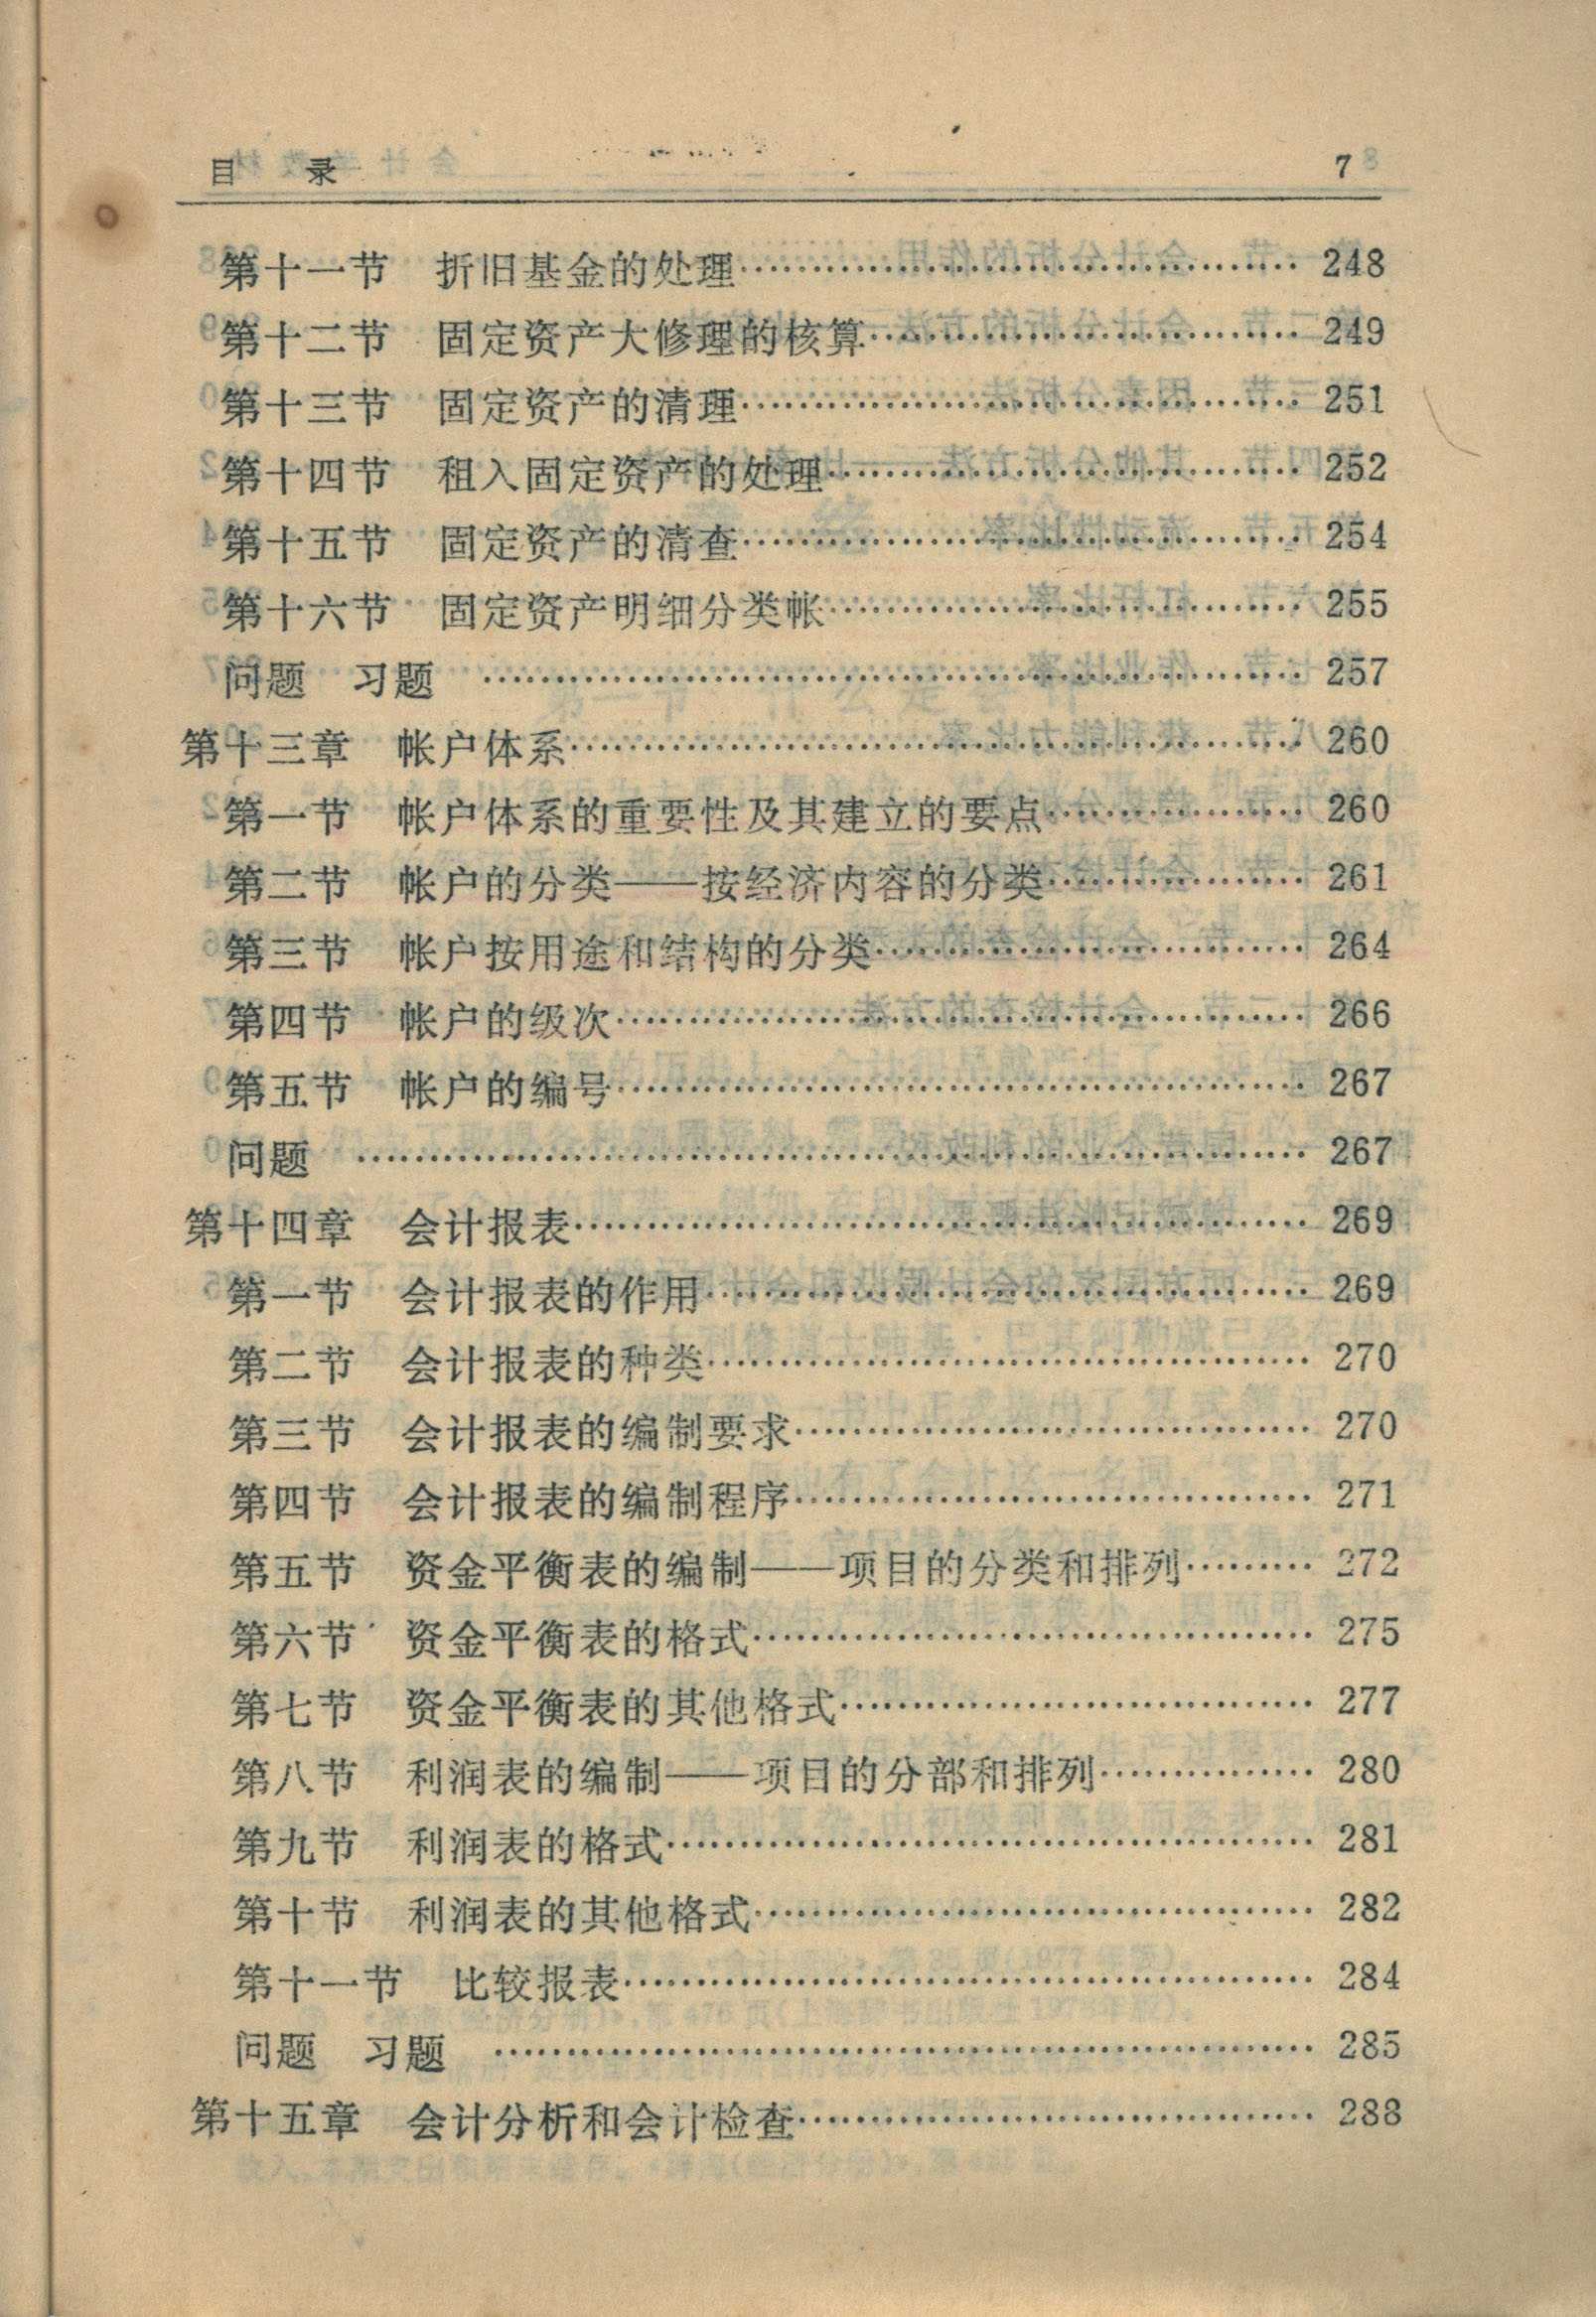 目　录　7
第十一节　折旧基金的处理…………………………………… 248
第十二节　固定资产大修理的核算…………………………… 249
第十三节　固定资产的清理…………………………………… 251
第十四节　租入固定资产的处理……………………………… 252
第十五节　固定资产的清查…………………………………… 254
第十六节　固定资产明细分类帐……………………………… 255
问题　习题　………………………………………………………… 257
第十三章　帐户体系………………………………………………… 260
第一节　帐户体系的重要性及其建立的要点………………… 260
第二节　帐户的分类——按经济内容的分类………………… 261
第三节　帐户按用途和结构的分类…………………………… 264
第四节　帐户的级次……………………………………………… 266
第五节　帐户的编号……………………………………………… 267
问题　………………………………………………………………… 267
第十四章　会计报表………………………………………………… 269
第一节　会计报表的作用………………………………………… 269
第二节　会计报表的种类………………………………………… 270
第三节　会计报表的编制要求…………………………………… 270
第四节　会计报表的编制程序…………………………………… 271
第五节　资金平衡表的编制——项目的分类和排列……… 272
第六节　资金平衡表的格式……………………………………… 275
第七节　资金平衡表的其他格式………………………………… 277
第八节　利润表的编制——项目的分部和排列…………… 280
第九节　利润表的格式…………………………………………… 281
第十节　利润表的其他格式……………………………………… 282
第十一节　比较报表……………………………………………… 284
问题　习题　………………………………………………………… 285
第十五章　会计分析和会计检查………………………………… 288